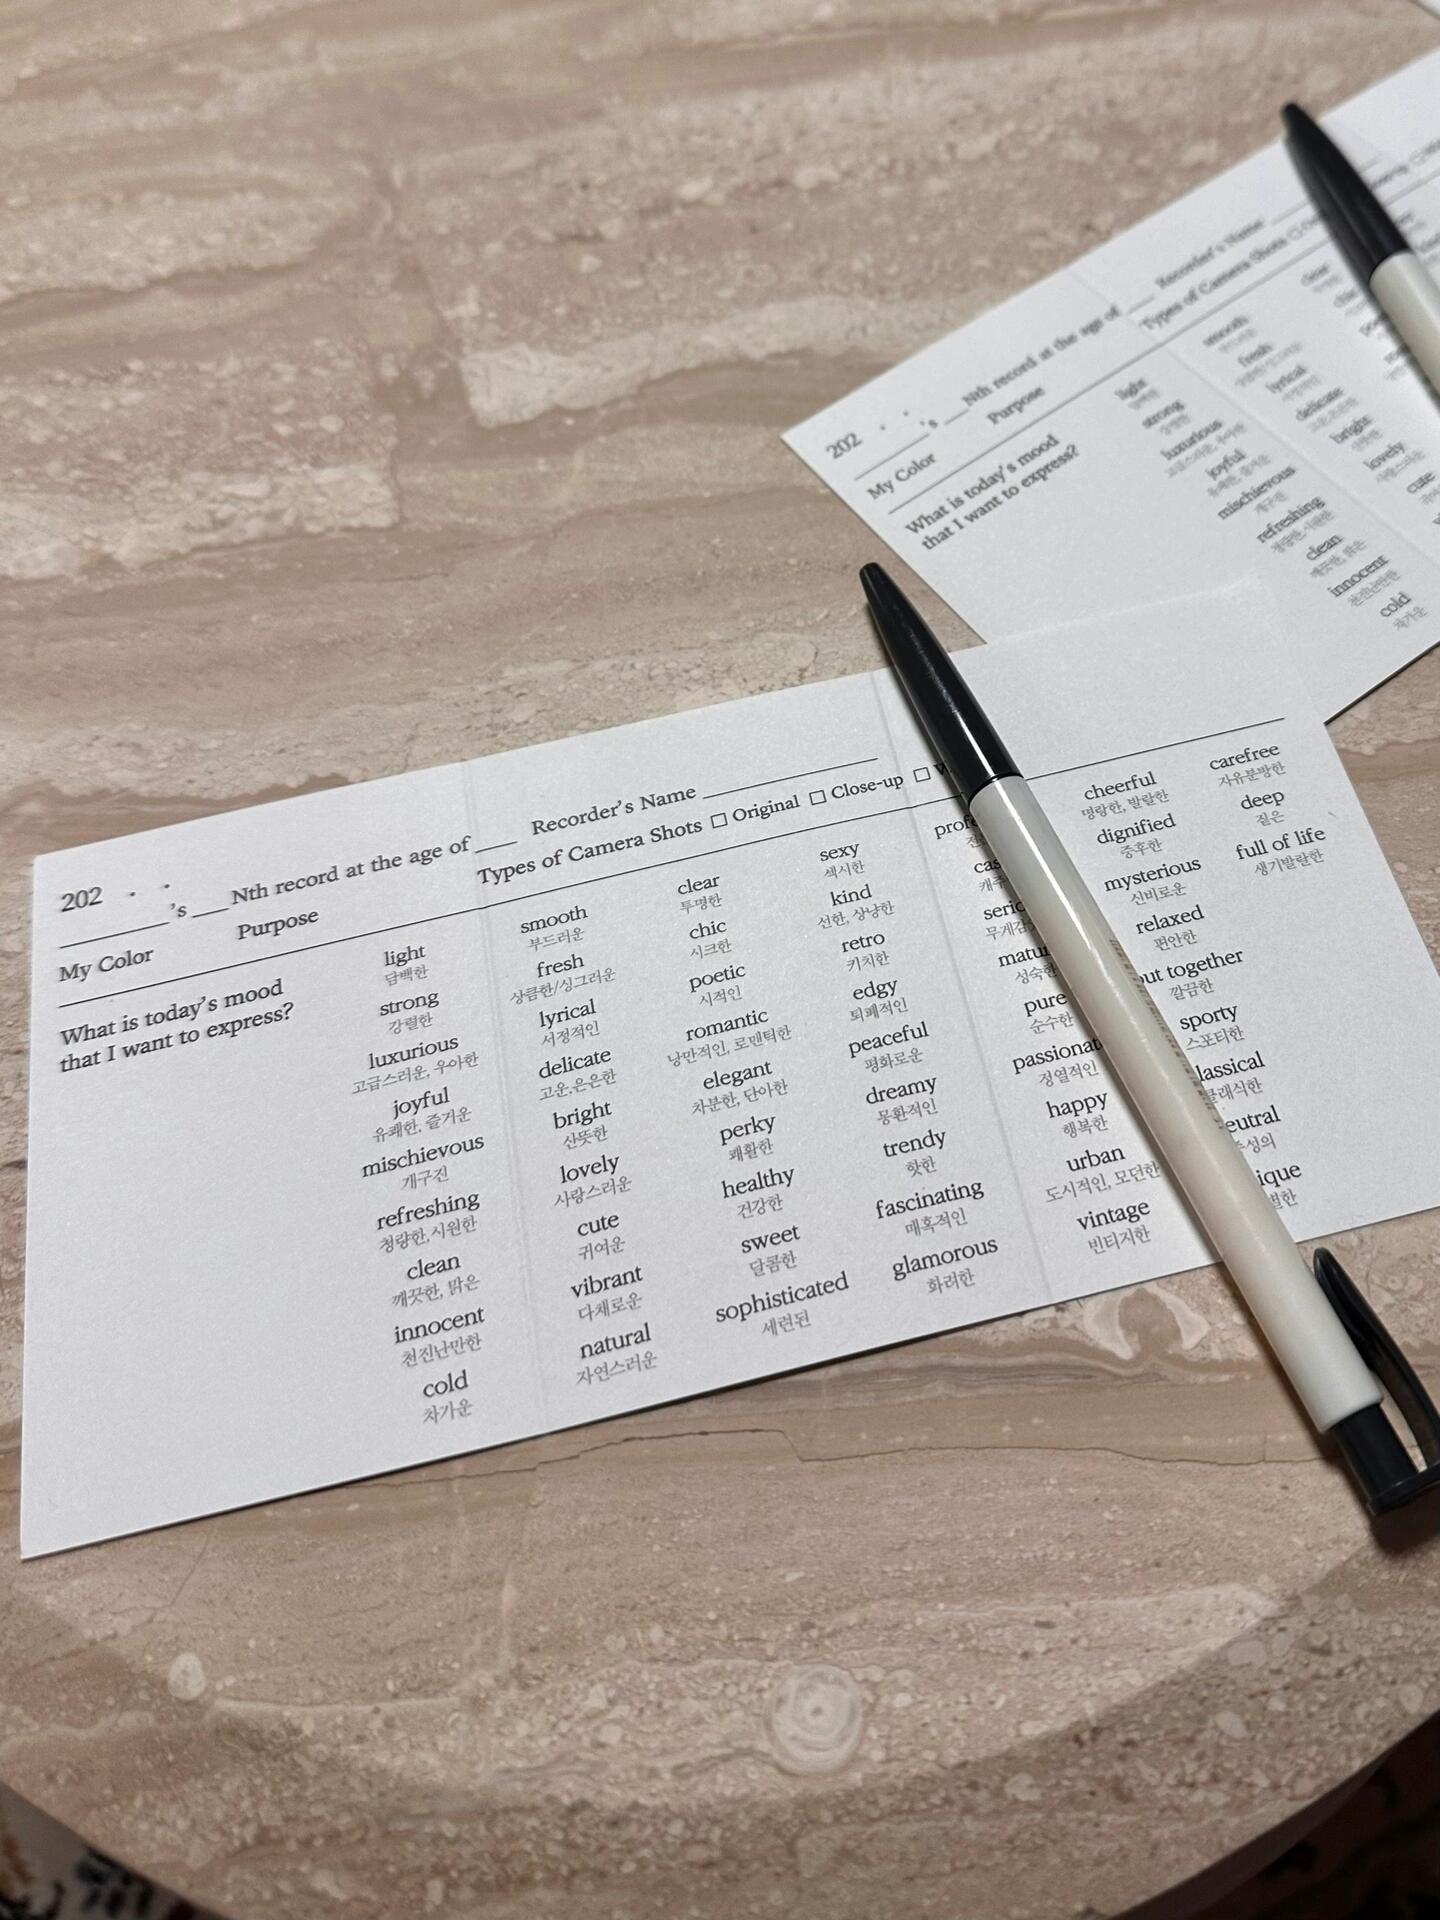 202 . .
___'s ___Nth record at the age of ___ Recorder's Name ___
My Color Purpose Types of Camera Shots □ Original □ Close-up □
What is today's mood
that I want to express?
light
담백한
strong
강렬한
luxurious
고급스러운, 우아한
joyful
유쾌한, 즐거운
mischievous
개구진
refreshing
청량한, 시원한
clean
깨끗한, 맑은
innocent
천진난만한
cold
차가운
smooth
부드러운
fresh
상큼한/싱그러운
lyrical
서정적인
delicate
고운,은은한
bright
산뜻한
lovely
사랑스러운
cute
귀여운
vibrant
다채로운
natural
자연스러운
clear
투명한
chic
시크한
poetic
시적인
romantic
낭만적인, 로맨틱한
elegant
차분한, 단아한
perky
쾌활한
healthy
건강한
sweet
달콤한
sophisticated
세련된
sexy
섹시한
kind
선한, 상냥한
retro
키치한
edgy
퇴폐적인
peaceful
평화로운
dreamy
몽환적인
trendy
핫한
fascinating
매혹적인
glamorous
화려한
성숙한
pure
순수한
정열적인
happy
행복한
urban
도시적인, 모던한
vintage
빈티지한
cheerful
명랑한, 발랄한
dignified
중후한
mysterious
신비로운
relaxed
편안한
together
깔끔한
sporty
스포티한
carefree
자유분방한
deep
짙은
full of life
생기발랄한
202 . .
___'s ___Nth record at the age of ___ Recorder's Name
My Color Purpose Types of Camera Shots □
What is today's mood
that I want to express?
light
strong
luxurious
joyful
mischievous
refreshing
clean
깨끗한, 맑은
innocent
천진난만한
cold
차가운
smooth
fresh
lyrical
delicate
bright
lovely
cute
clear